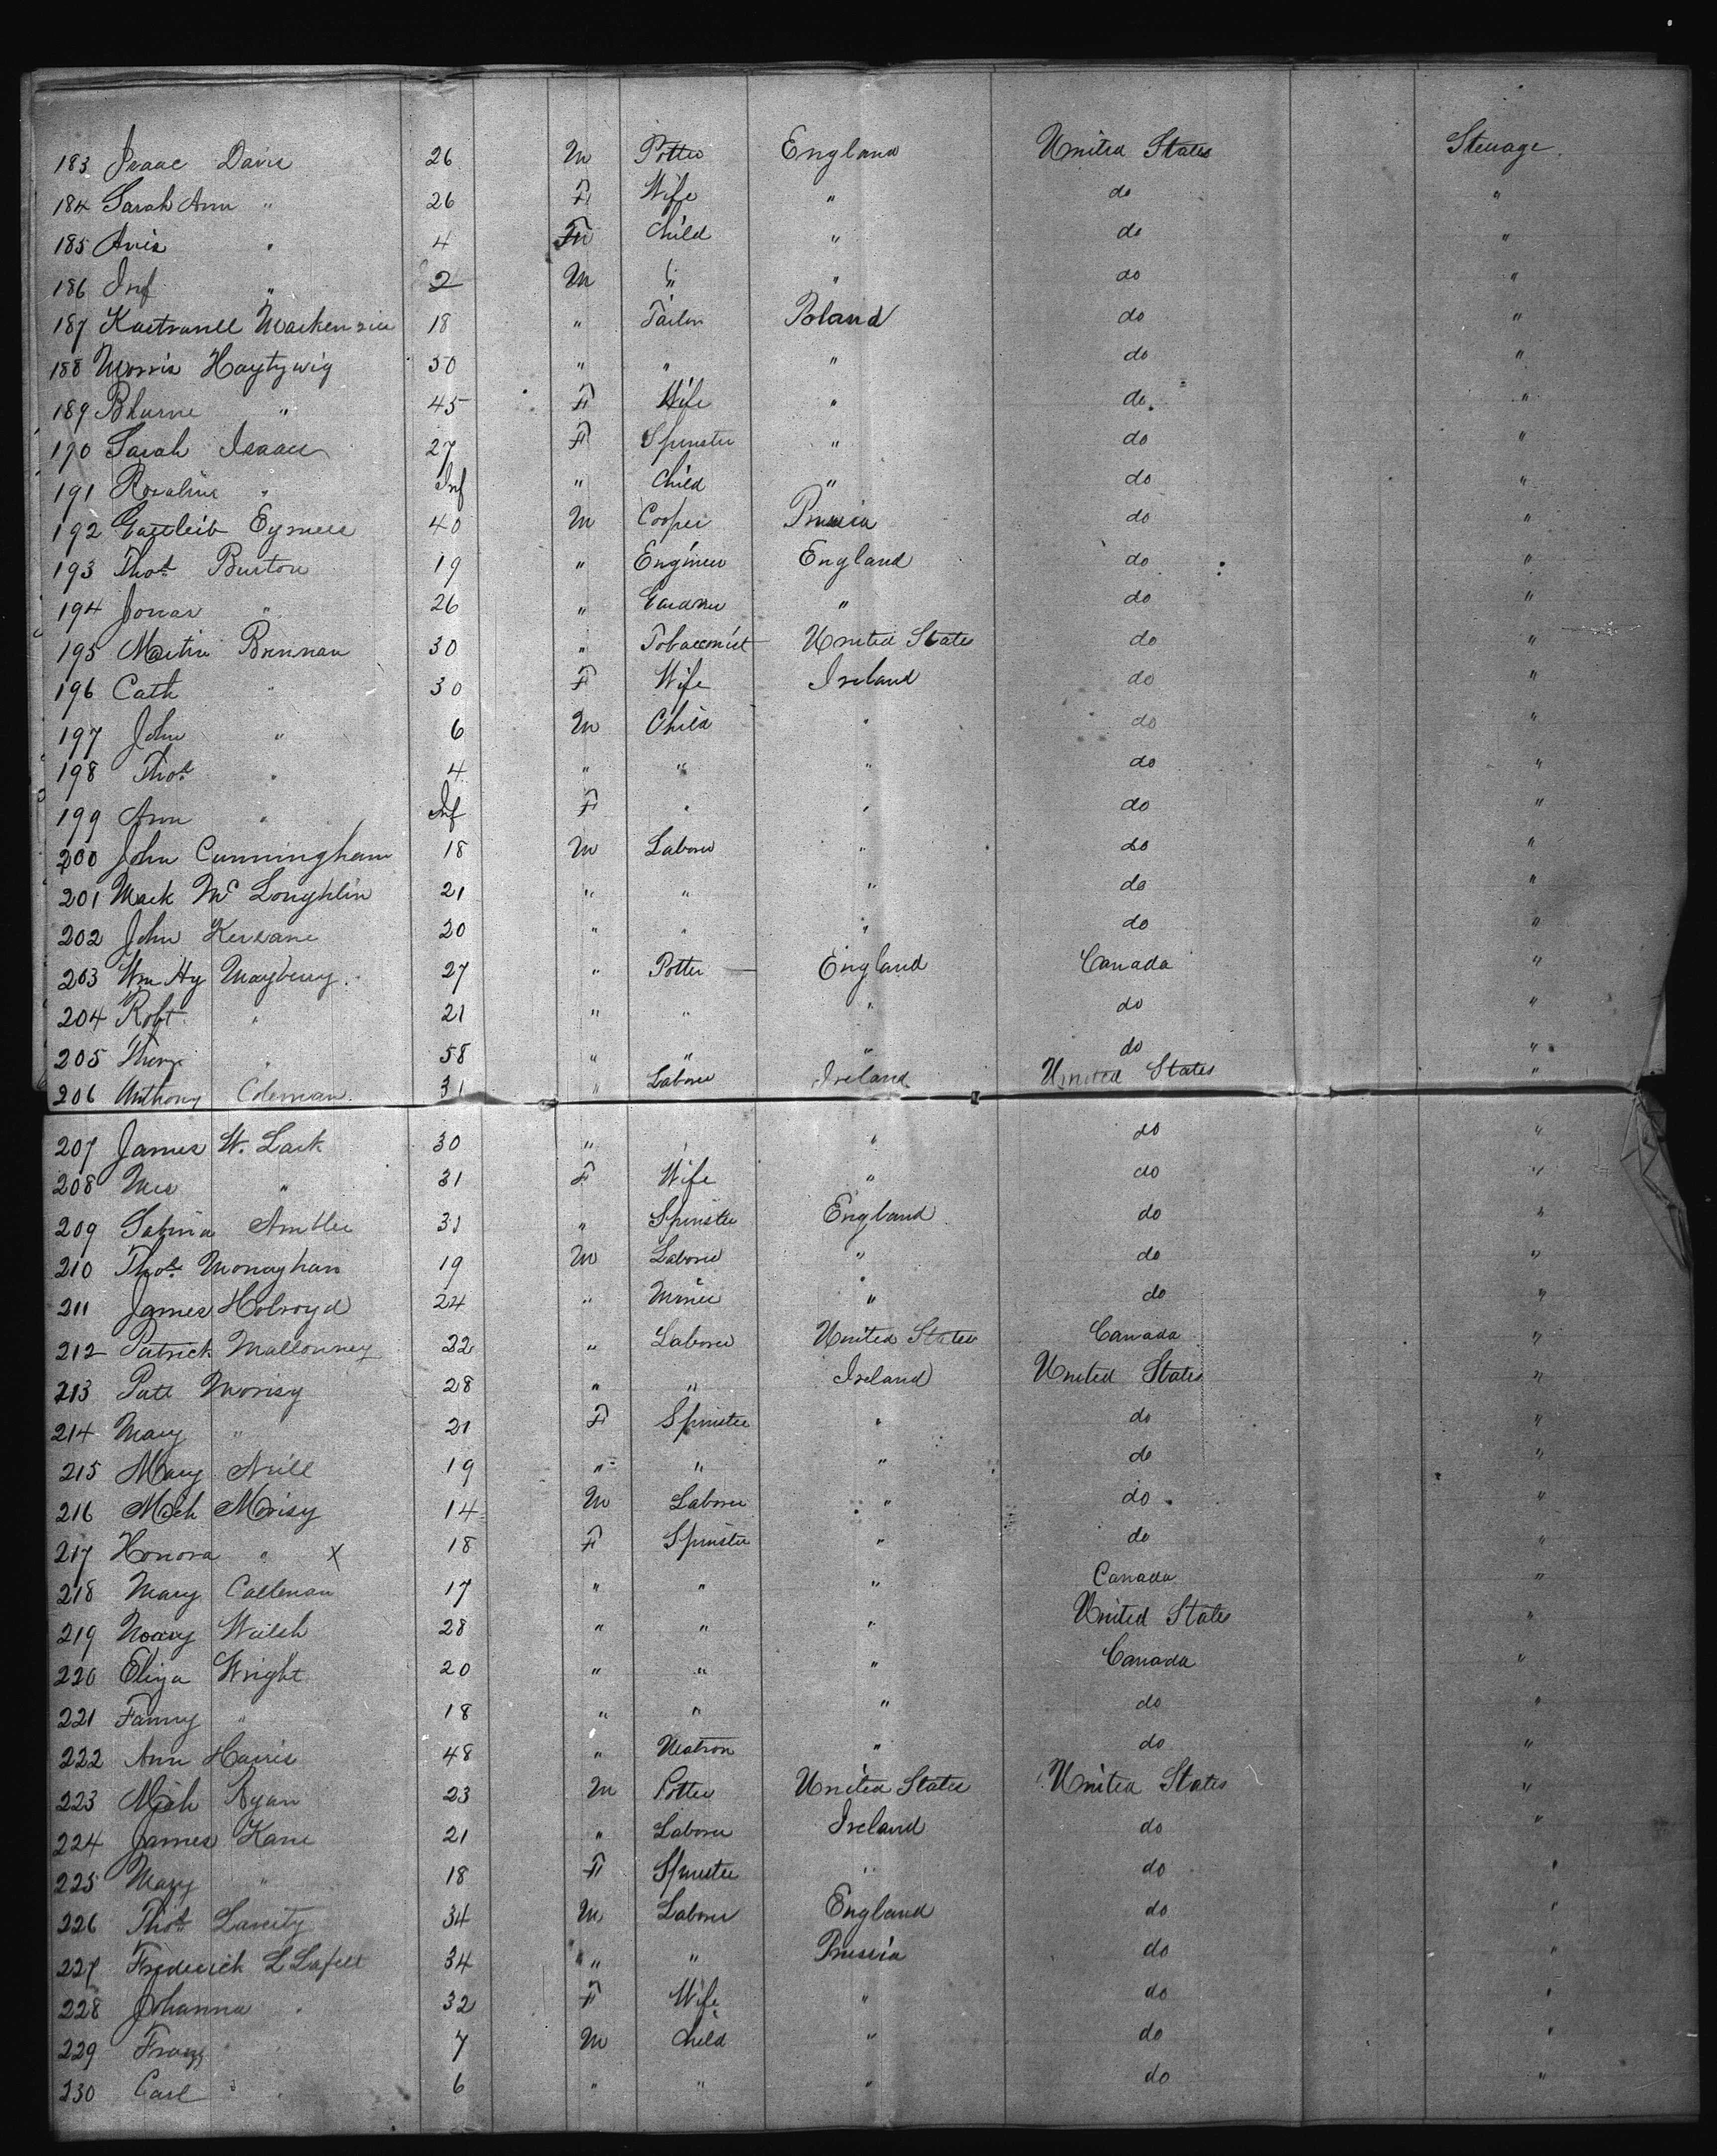 183 Isaac Davis 26 M Potter England United States Steerage.
184 Sarah Ann " 26 F Wife " do "
185 Avis " 4 Child " do "
186 Inf " 2 M " " do "
187 18 " Tailor Poland do "
188 Morris 50 " " " do "
189 " 45 F Wife " do "
190 Sarah Isaacs 27 F Spinster " do "
191 Rosalina " Inf " Child " do "
192 Gottleib 40 M Cooper Prussia do "
193 Thos Burton 19 " Engineer England do "
194 Jonas " 26 " Gardner " do "
195 Martin Brennan 30 " Tobacconist United States do "
196 Cath " 30 F Wife Ireland do "
197 John " 6 M Child " do "
198 Thos " 4 " " " do "
199 Ann " Inf F " " do "
200 John Cunningham 18 M Laborer " do "
201 Mark Mc Loughlin 21 " " " do "
202 John 20 " " " do "
203 Wm Hy Mayberry. 27 " Potter England Canada "
204 Robt " 21 " " " do "
205 " 58 " " " do "
206 Anthony Coleman. 31 " Laborer Ireland United States "
207 James W. Lark 30 " " " do "
208 Mrs " 31 F Wife " do "
209 Sabina Ambler 31 " Spinster England do "
210 Thos Monaghan 19 M Laborer " do "
211 James Holroyd 24 " Miner " do "
212 Patrick Mallowney 22 " Laborer United States Canada "
213 Patt Morisy 28 " " Ireland United States "
214 Mary " 21 F Spinster " do "
215 Mary Neill 19 " " " do "
216 Mich Morisy 14 M Laborer " do "
217 Honora " X 18 F Spinster " do "
218 Mary Calleman 17 " " " Canada "
219 Mary Walsh 28 " " " United States "
220 Eliza Wright 20 " " " Canada "
221 Fanny " 18 " " " do "
222 Ann Harris 48 " Matron " do "
223 Mich Ryan 23 M Potter United States United States "
224 James Kane 21 " Laborer Ireland do "
225 Mary " 18 F Spinster " do "
226 Thos Laverty 34 M Laborer England do "
227 Frederick L 34 " " Prussia do "
228 Johanna " 32 F Wife " do "
229 Franz " 7 M Child " do "
230 Carl " 6 " " " do "